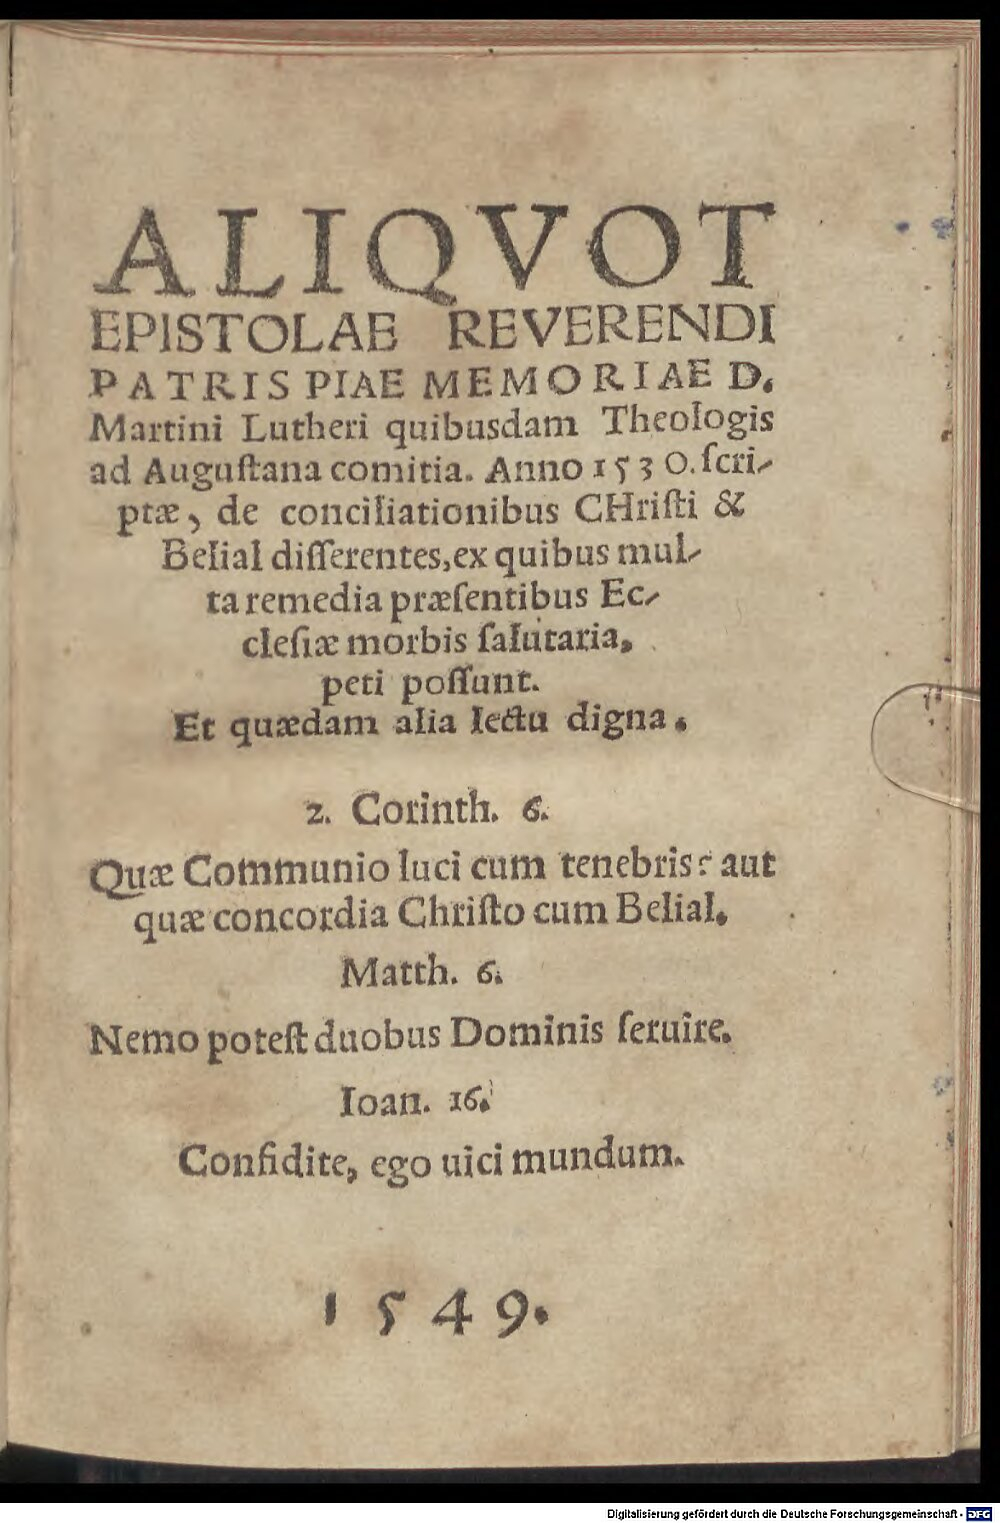 ALIQVOT
EPISTOLAE REVERENDI
PATRIS PIAE MEMORIAE D.
Martini Lutheri quibusdam Theologis
ad Auguſtana comitia. Anno 1530. ſcri-
ptæ, de conciliationibus CHriſti &
Belial diſſerentes, ex quibus mul-
ta remedia præſentibus Ec-
cleſiæ morbis ſalutaria,
peti poſſunt.
Et quædam alia lectu digna.
2. Corinth. 6.
Quæ Communio luci cum tenebris? aut
quæ concordia Chriſto cum Belial.
Matth. 6.
Nemo poteſt duobus Dominis ſeruire.
Ioan. 16.
Confidite, ego uici mundum.
1549.
Digitalisierung gefördert durch die Deutsche Forschungsgemeinschaft - DFG